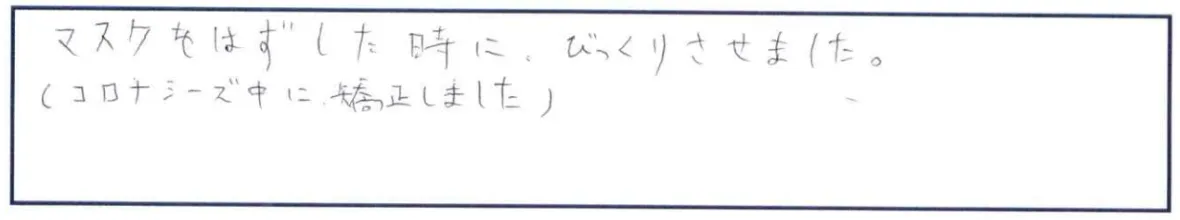 マスクをはずした時に、びっくりさせました。
(コロナシーズ中に、矯正しました)